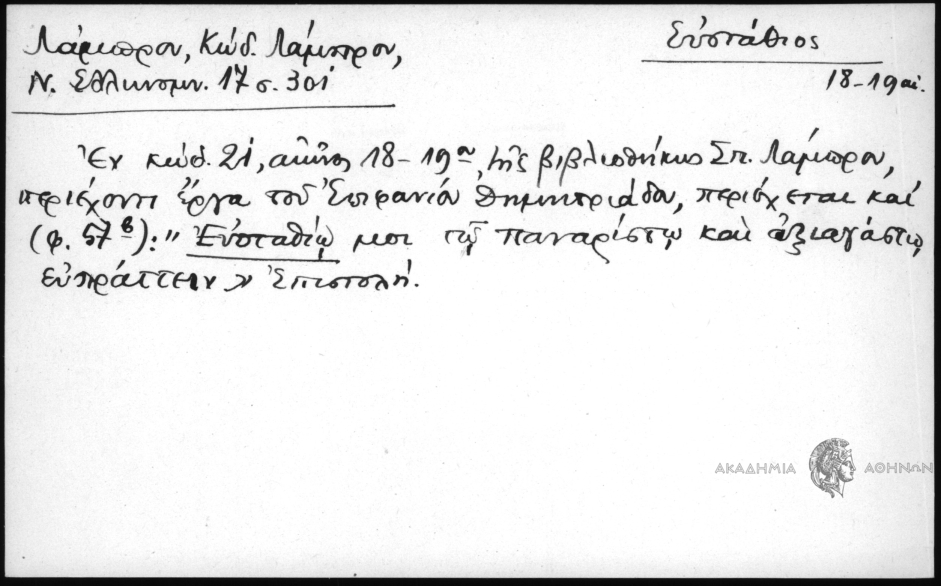 Λάμπρου, Κώδ. Λάμπρου,
Ν. Ἑλληνομν. 17 σ. 301
Εὐστάθιος
18-19 αἰ.
Ἐν κώδ. 21, αἰῶνος 18-19ου, τῆς βιβλιοθήκης Σπ. Λάμπρου,
περιέχοντι ἔργα τοῦ Ἐπιφανίου Δημητριάδου, περιέχεται καὶ
(φ. 57β): " Εὐσταθίῳ μοι τῷ παναρίστῳ καὶ ἀξιαγάστῳ
εὐπράττειν » Ἐπιστολή.
ΑΚΑΔΗΜΙΑ ΑΘΗΝΩΝ